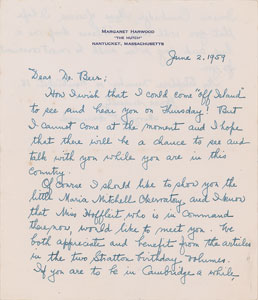 MARGARET HARWOOD
"THE HUTCH"
NANTUCKET, MASSACHUSETTS
June 2, 1959
Dear Dr. Beer;
How I wish that I could come "off Island"
to see and hear you on Thursday! But
I cannot come at the moment and I hope
that there will be a chance to see and
talk with you while you are in this
country.
Of course I should like to show you the
little Maria Mitchell Observatory and I know
that Miss Hoffleit who is in command
there now, would like to meet you. We
both appreciate and benefit from the articles
in the two Stratton birthday volumes.
If you are to be in Cambridge a while,